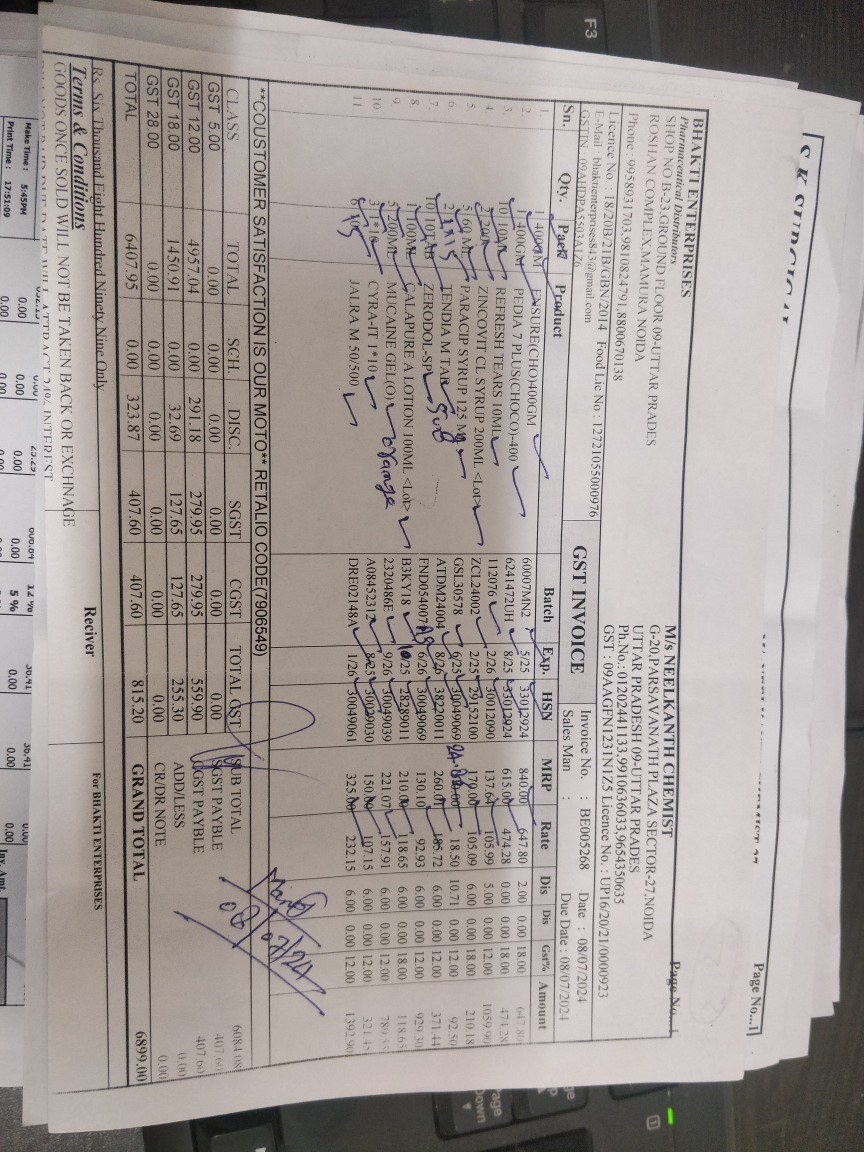 S K SURGICAL
Page No...1
BHAKTI ENTERPRISES
Pharmaceutical Distributors
SHOP NO B-23,GROUND FLOOR 09-UTTAR PRADES
ROSHAN COMPLEX,MAMURA NOIDA
Phone : 9958931703,9810824791,8800670138
Licence No. : 18/20B/21B/GBN/2014 Food Lic No : 12721055000976
E-Mail : bhaktienterprises843@gmail.com
GSTIN : 09AHDPA5503A1Z6
Page No...1
M/s NEELKANTH CHEMIST
G-20,PARSAVANATH PLAZA SECTOR-27,NOIDA
UTTAR PRADESH 09-UTTAR PRADES
Ph.No.: 01202441133,9910636033,9654350635
GST : 09AAGFN1231N1Z5 Licence No. : UP16/20/21/0000923
GST INVOICE
Invoice No. : BE005268 Date : 08/07/2024
Sales Man : Due Date : 08/07/2024
Sn. Qty. Pack Product Batch Exp. HSN MRP Rate Dis Dis Gst% Amount
1 1 400GM ENSURE(CHO)400GM 60007MN2 5/25 33012924 840.00 647.80 2.00 0.00 18.00 647.80
2. 1 400GM PEDIA 7 PLUS(CHOCO)-400 6241472UH 8/25 33012924 615.00 474.28 0.00 0.00 18.00 474.28
3. 10 10ML REFRESH TEARS 10ML 112076 2/26 30012090 137.64 105.99 5.00 0.00 12.00 1059.90
4 2 200 ZINCOVIT CL SYRUP 200ML <Lot> ZCL24002 2/25 29152100 170.00 105.09 6.00 0.00 18.00 210.18
5. 5 60 ML PARACIP SYRUP 125 M GSL30578 6/25 30049069 18.50 10.71 0.00 12.00 92.50
6. 2 TENDIA M TAB ATDM24004 8/26 38220011 260.0 185.72 6.00 0.00 12.00 371.44
7. 10 10TAB ZERODOL-SP FND054007 6/26 30049069 130.10 92.93 6.00 0.00 12.00 929.30
8. 1 100ML CALAPURE A LOTION 100ML <Lot> B3KY18 10/25 28289011 210.00 118.65 6.00 0.00 18.00 118.65
9. 5 200ML MUCAINE GEL(O) orange 2320486E 9/26 30049039 221.07 157.91 6.00 0.00 12.00 789.55
10 3 1*10 CYRA-IT 1*10 A08452312 8/25 30029030 150.00 107.15 6.00 0.00 12.00 321.45
11 6 JALRA M 50/500 DRE02148A 1/26 30049061 325.00 232.15 6.00 0.00 12.00 1392.90
**COUSTOMER SATISFACTION IS OUR MOTO** RETALIO CODE(7906549)
CLASS TOTAL SCH. DISC. SGST CGST TOTAL GST
GST 5.00 0.00 0.00 0.00 0.00 0.00 0.00
GST 12.00 4957.04 0.00 291.18 279.95 279.95 559.90
GST 18.00 1450.91 0.00 32.69 127.65 127.65 255.30
GST 28.00 0.00 0.00 0.00 0.00 0.00 0.00
TOTAL 6407.95 0.00 323.87 407.60 407.60 815.20
SUB TOTAL 6084.08
SGST PAYBLE 407.60
CGST PAYBLE 407.60
ADD/LESS 0.00
CR/DR NOTE 0.00
GRAND TOTAL 6899.00
08/07/24
Rs. Six Thousand Eight Hundred Ninety Nine Only
Terms & Conditions
GOODS ONCE SOLD WILL NOT BE TAKEN BACK OR EXCHNAGE
Reciver
For BHAKTI ENTERPRISES
Make Time : 5:45PM
Print Time : 17:51:09
0.00
0.00
0.00
0.00
12 %
5 %
36.41
0.00
36.41
0.00
Inv. Amt.
F3
Page Down